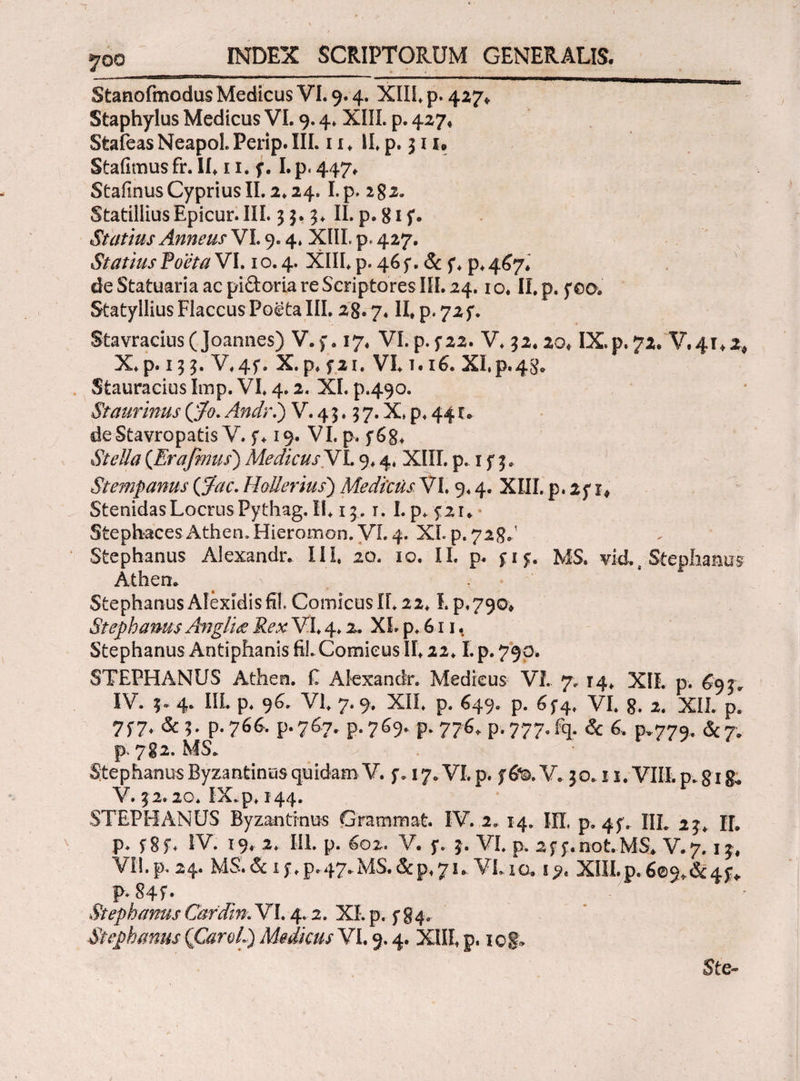 700 INDEX SCRIPTORUM GENERALIS.
Stanoſmodus Medicus VI. 9. 4. XIII. p. 427.
Staphylus Medicus VI. 9. 4. XIII. p. 427.
Staſeas Neapol. Perip. III. 11. II. p. 311.
Staſimus fr. II. 11. 5. I. p. 447.
Staſinus Cyprius II. 2. 24. I. p. 282.
Statillius Epicur. III. 33. 3. II. p. 815.
Statius Anneus VI. 9. 4. XIII. p. 427.
Statius Poëta VI. 10. 4. XIII. p. 465. & 5. p. 467.
de Statuaria ac pictoria re Scriptores III. 24. 10. II. p. 500.
Statyllius Flaccus Poëta III. 28. 7. II. p. 725.
Stavracius (Joannes) V. 5. 17. VI. p. 522. V. 32. 20. IX. p. 72. V. 41. 2.
X. p. 133. V. 45. X. p. 521. VI. 1. 16. XI. p. 48.
Stauracius Imp. VI. 4. 2. XI. p. 490.
Staurinus (Jo. Andr.) V. 43. 37. X. p. 441.
de Stavropatis V. 5. 19. VI. p. 568.
Stella (Eraſmus) Medicus VI. 9. 4. XIII. p. 153.
Stempanus (Jac. Hollerius) Medicus VI. 9. 4. XIII. p. 251.
Stenidas Locrus Pythag. II. 13. 1. I. p. 521.
Stephaces Athen. Hieromon. VI. 4. XI. p. 728.
Stephanus Alexandr. III. 20. 10. II. p. 515. MS. vid. Stephanus
Athen.
Stephanus Alexidis fil. Comicus II. 22. I. p. 790.
Stephanus Angliæ Rex VI. 4. 2. XI. p. 611.
Stephanus Antiphanis fil. Comicus II. 22. I. p. 790.
STEPHANUS Athen. ſ. Alexandr. Medicus VI. 7. 14. XII. p. 693.
IV. 3. 4. III. p. 96. VI. 7. 9. XII. p. 649. p. 654. VI. 8. 2. XII. p.
757. & 3. p. 766. p. 767. p. 769. p. 776. p. 777. ſq. & 6. p. 779. & 7.
p. 782. MS.
Stephanus Byzantinus quidam V. 5. 17. VI. p. 560. V. 30. 11. VIII. p. 818.
V. 32. 20. IX. p. 144.
STEPHANUS Byzantinus Grammat. IV. 2. 14. III. p. 45. III. 23. II.
p. 585. IV. 19. 2. III. p. 602. V. 5. 3. VI. p. 255. not. MS. V. 7. 13.
VII. p. 24. MS. & 15. p. 47. MS. & p. 71. VI. 10. 19. XIII. p. 609. & 45.
p. 845.
Stephanus Cardin. VI. 4. 2. XI. p. 584.
Stephanus (Carol.) Medicus VI. 9. 4. XIII. p. 108.
Ste-